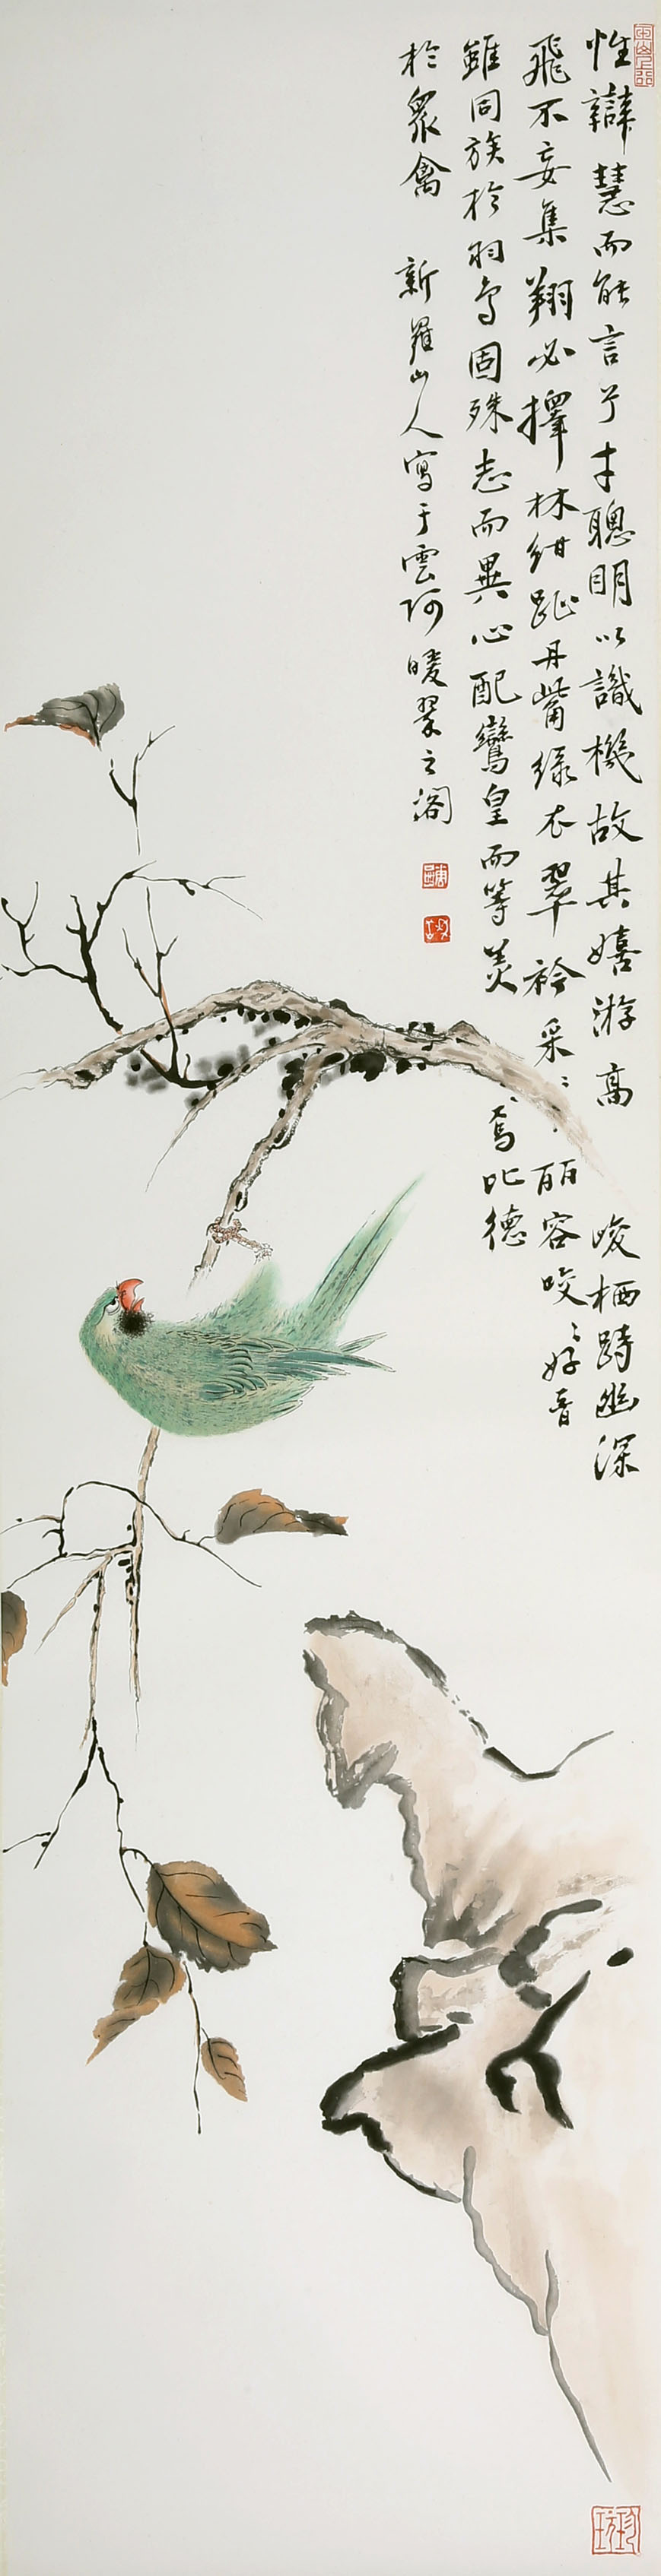 性辯慧而能言兮才聰明以識機故其嬉游高峻栖跱幽深
飛不妄集翔必擇林紺趾丹觜綠衣翠衿采〻丽容咬〻好音
雖同族於羽鳥固殊志而異心配鸞皇而等美焉比德
於眾禽 新羅山人寫于雲阿暖翠之閣